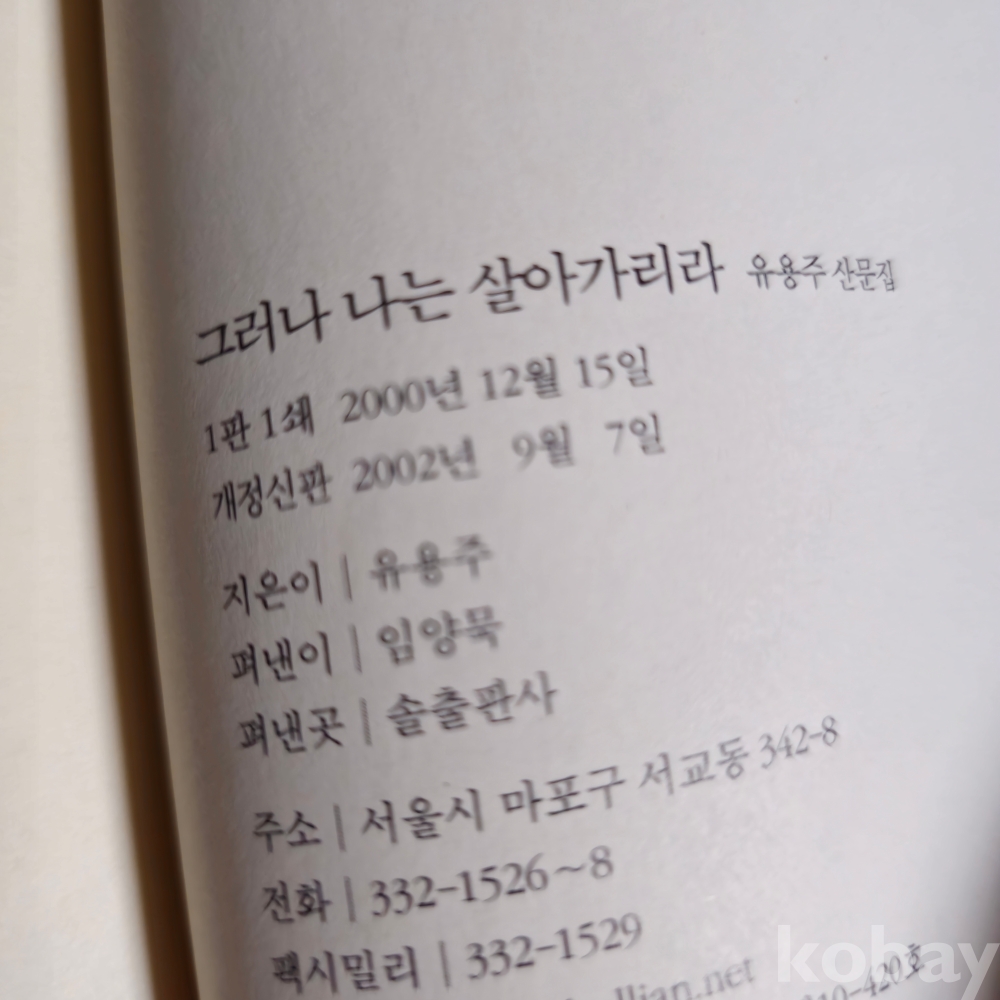 그러나 나는 살아가리라 유용주 산문집
1판 1쇄 2000년 12월 15일
개정신판 2002년 9월 7일
지은이 | 유용주
펴낸이 | 임양묵
펴낸곳 | 솔출판사
주소 | 서울시 마포구 서교동 342-8
전화 | 332-1526~8
팩시밀리 | 332-1529
kobay